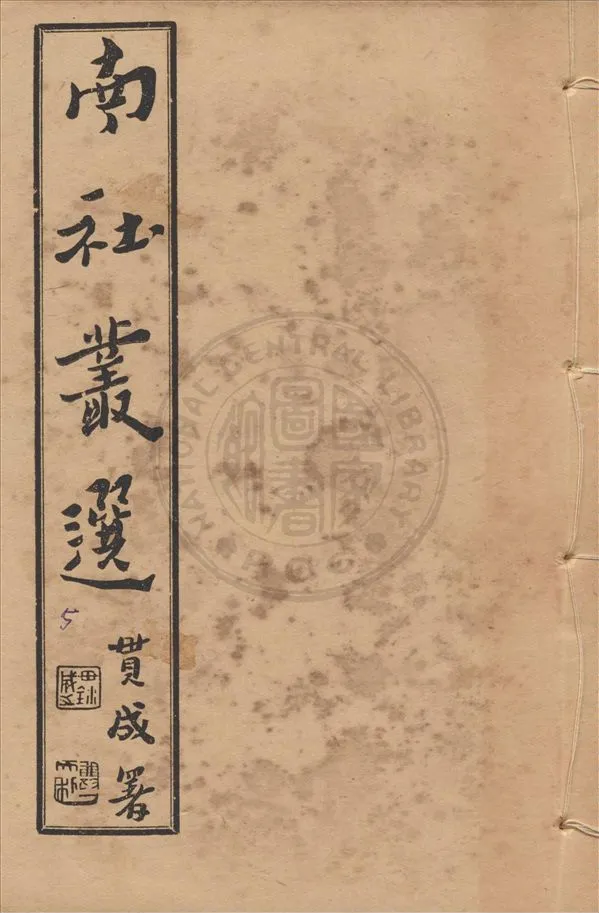 南社叢選
5
貫成署
NATIONAL CENTRAL LIBRARY
國家圖書館